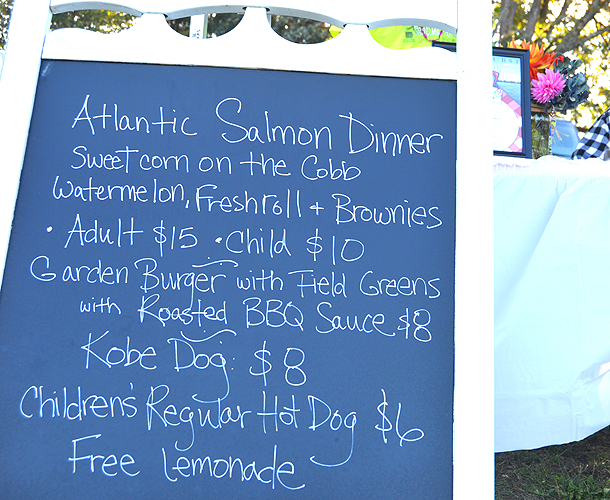 Atlantic Salmon Dinner
Sweet corn on the Cobb
Watermelon, Fresh roll + Brownies
• Adult $15 • Child $10
Garden Burger with Field Greens
with Roasted BBQ Sauce $8
Kobe Dog: $8
Children's Regular Hot Dog $6
Free Lemonade